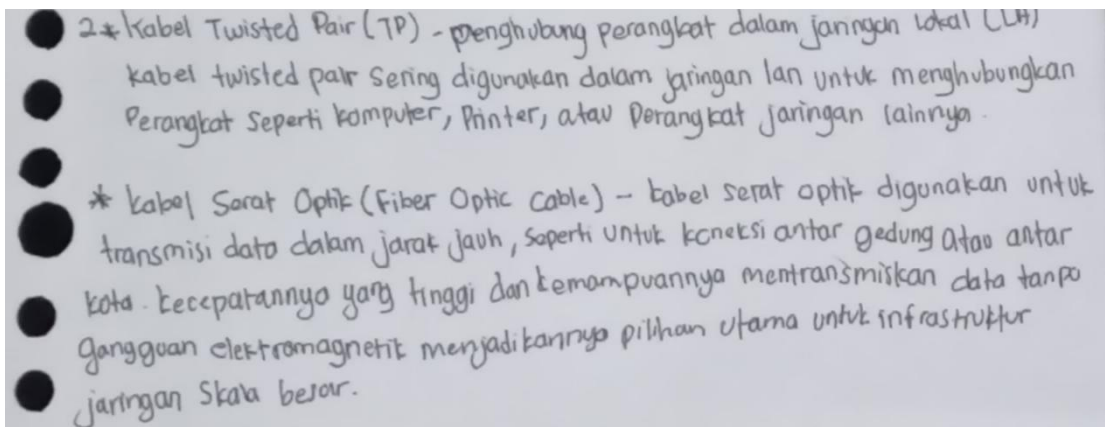 2* Kabel Twisted Pair (TP) - penghubung perangkat dalam jaringan lokal (LA)
kabel twisted pair sering digunakan dalam jaringan lan untuk menghubungkan
Perangkat seperti komputer, Printer, atau Perangkat jaringan lainnya.
* kabel Sarat Optik (Fiber Optic Cable) - kabel serat optik digunakan untuk
transmisi data dalam jarak jauh, seperti untuk koneksi antar gedung atau antar
kota. keceparannya yang tinggi dan kemampuannya mentransmiskan data tanpa
gangguan elektromagnetik menjadikannya pilihan utama untuk infrastruktur
jaringan Skala besar.